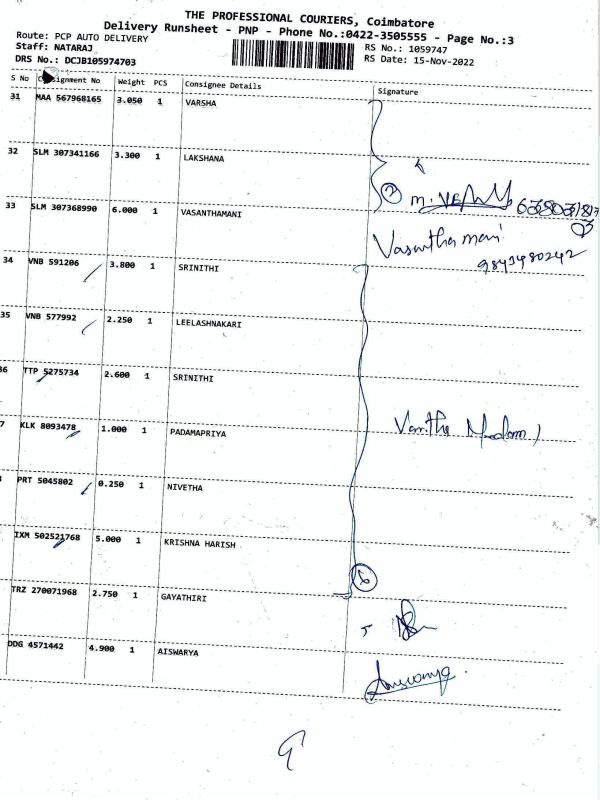 THE PROFESSIONAL COURIERS, Coimbatore
Delivery Runsheet - PNP - Phone No.:0422-3505555 - Page No.:3
Route: PCP AUTO DELIVERY
RS No.: 1059747
Staff: NATARAJ
RS Date: 15-Nov-2022
DRS No.: DCJB105974703
S No Consignment No Weight PCS Consignee Details Signature
31 MAA 567968165 3.050 1 VARSHA
32 SLM 307341166 3.300 1 LAKSHANA
2
33 SLM 307368990 6.000 1 VASANTHAMANI
Vasanthamani
9843480242
34 VNB 591206 3.800 1 SRINITHI
35 VNB 577992 2.250 1 LEELASHNAKARI
36 TTP 5275734 2.600 1 SRINITHI
7 KLK 8093478 1.000 1 PADAMAPRIYA
PRT 5045802 0.250 1 NIVETHA
IXM 502521768 5.000 1 KRISHNA HARISH
6
TRZ 270071968 2.750 1 GAYATHIRI
DDG 4571442 4.900 1 AISWARYA